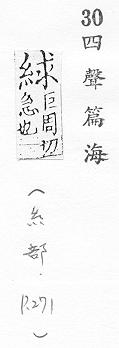 30四聲篇海
絿
巨周切
急也
(糸部.
P.271)